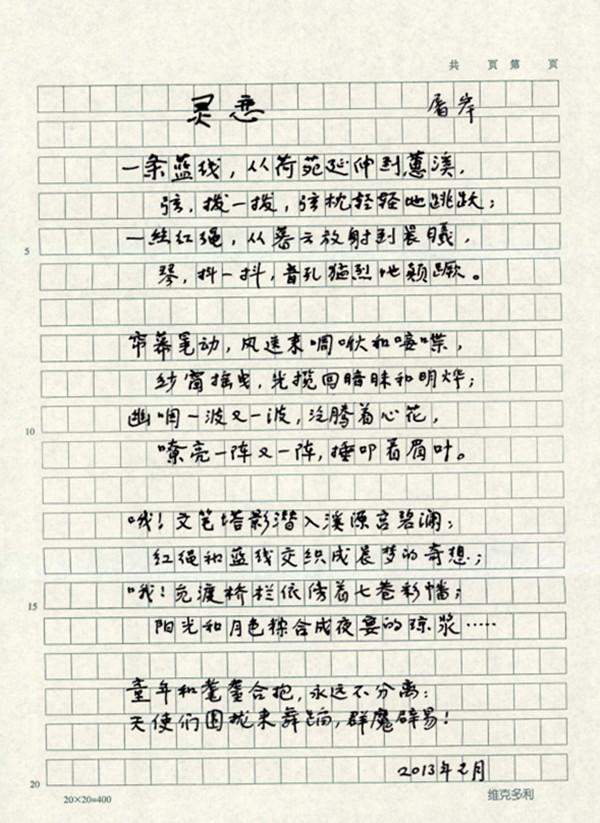 共 页 第 页
灵恋
屠岸
一条蓝线，从荷苑延伸到蕙溪，
弦，拨一拨，弦枕轻轻地跳跃；
5
一丝红绳，从暮云放射到晨曦，
琴，抖一抖，音孔猛烈地颠蹶。
帘幕晃动，风送来啁啾和喋，
纱窗摇曳，光揽回暗昧和明烨；
10
幽咽一波又一波，沸腾着心花，
嘹亮一阵又一阵，捶叩着眉叶。
哦！文笔塔影潜入溪源宫碧澜；
红绳和蓝线交织成晨梦的奇想；
15
哦！宛渡桥栏依傍着七巷彩幡；
阳光和月色综合成夜宴的琼浆……
童年和耄耋合抱，永远不分离：
天使们围拢来舞蹈，群魔辟易！
2013年元月
20
20×20=400
维克多利